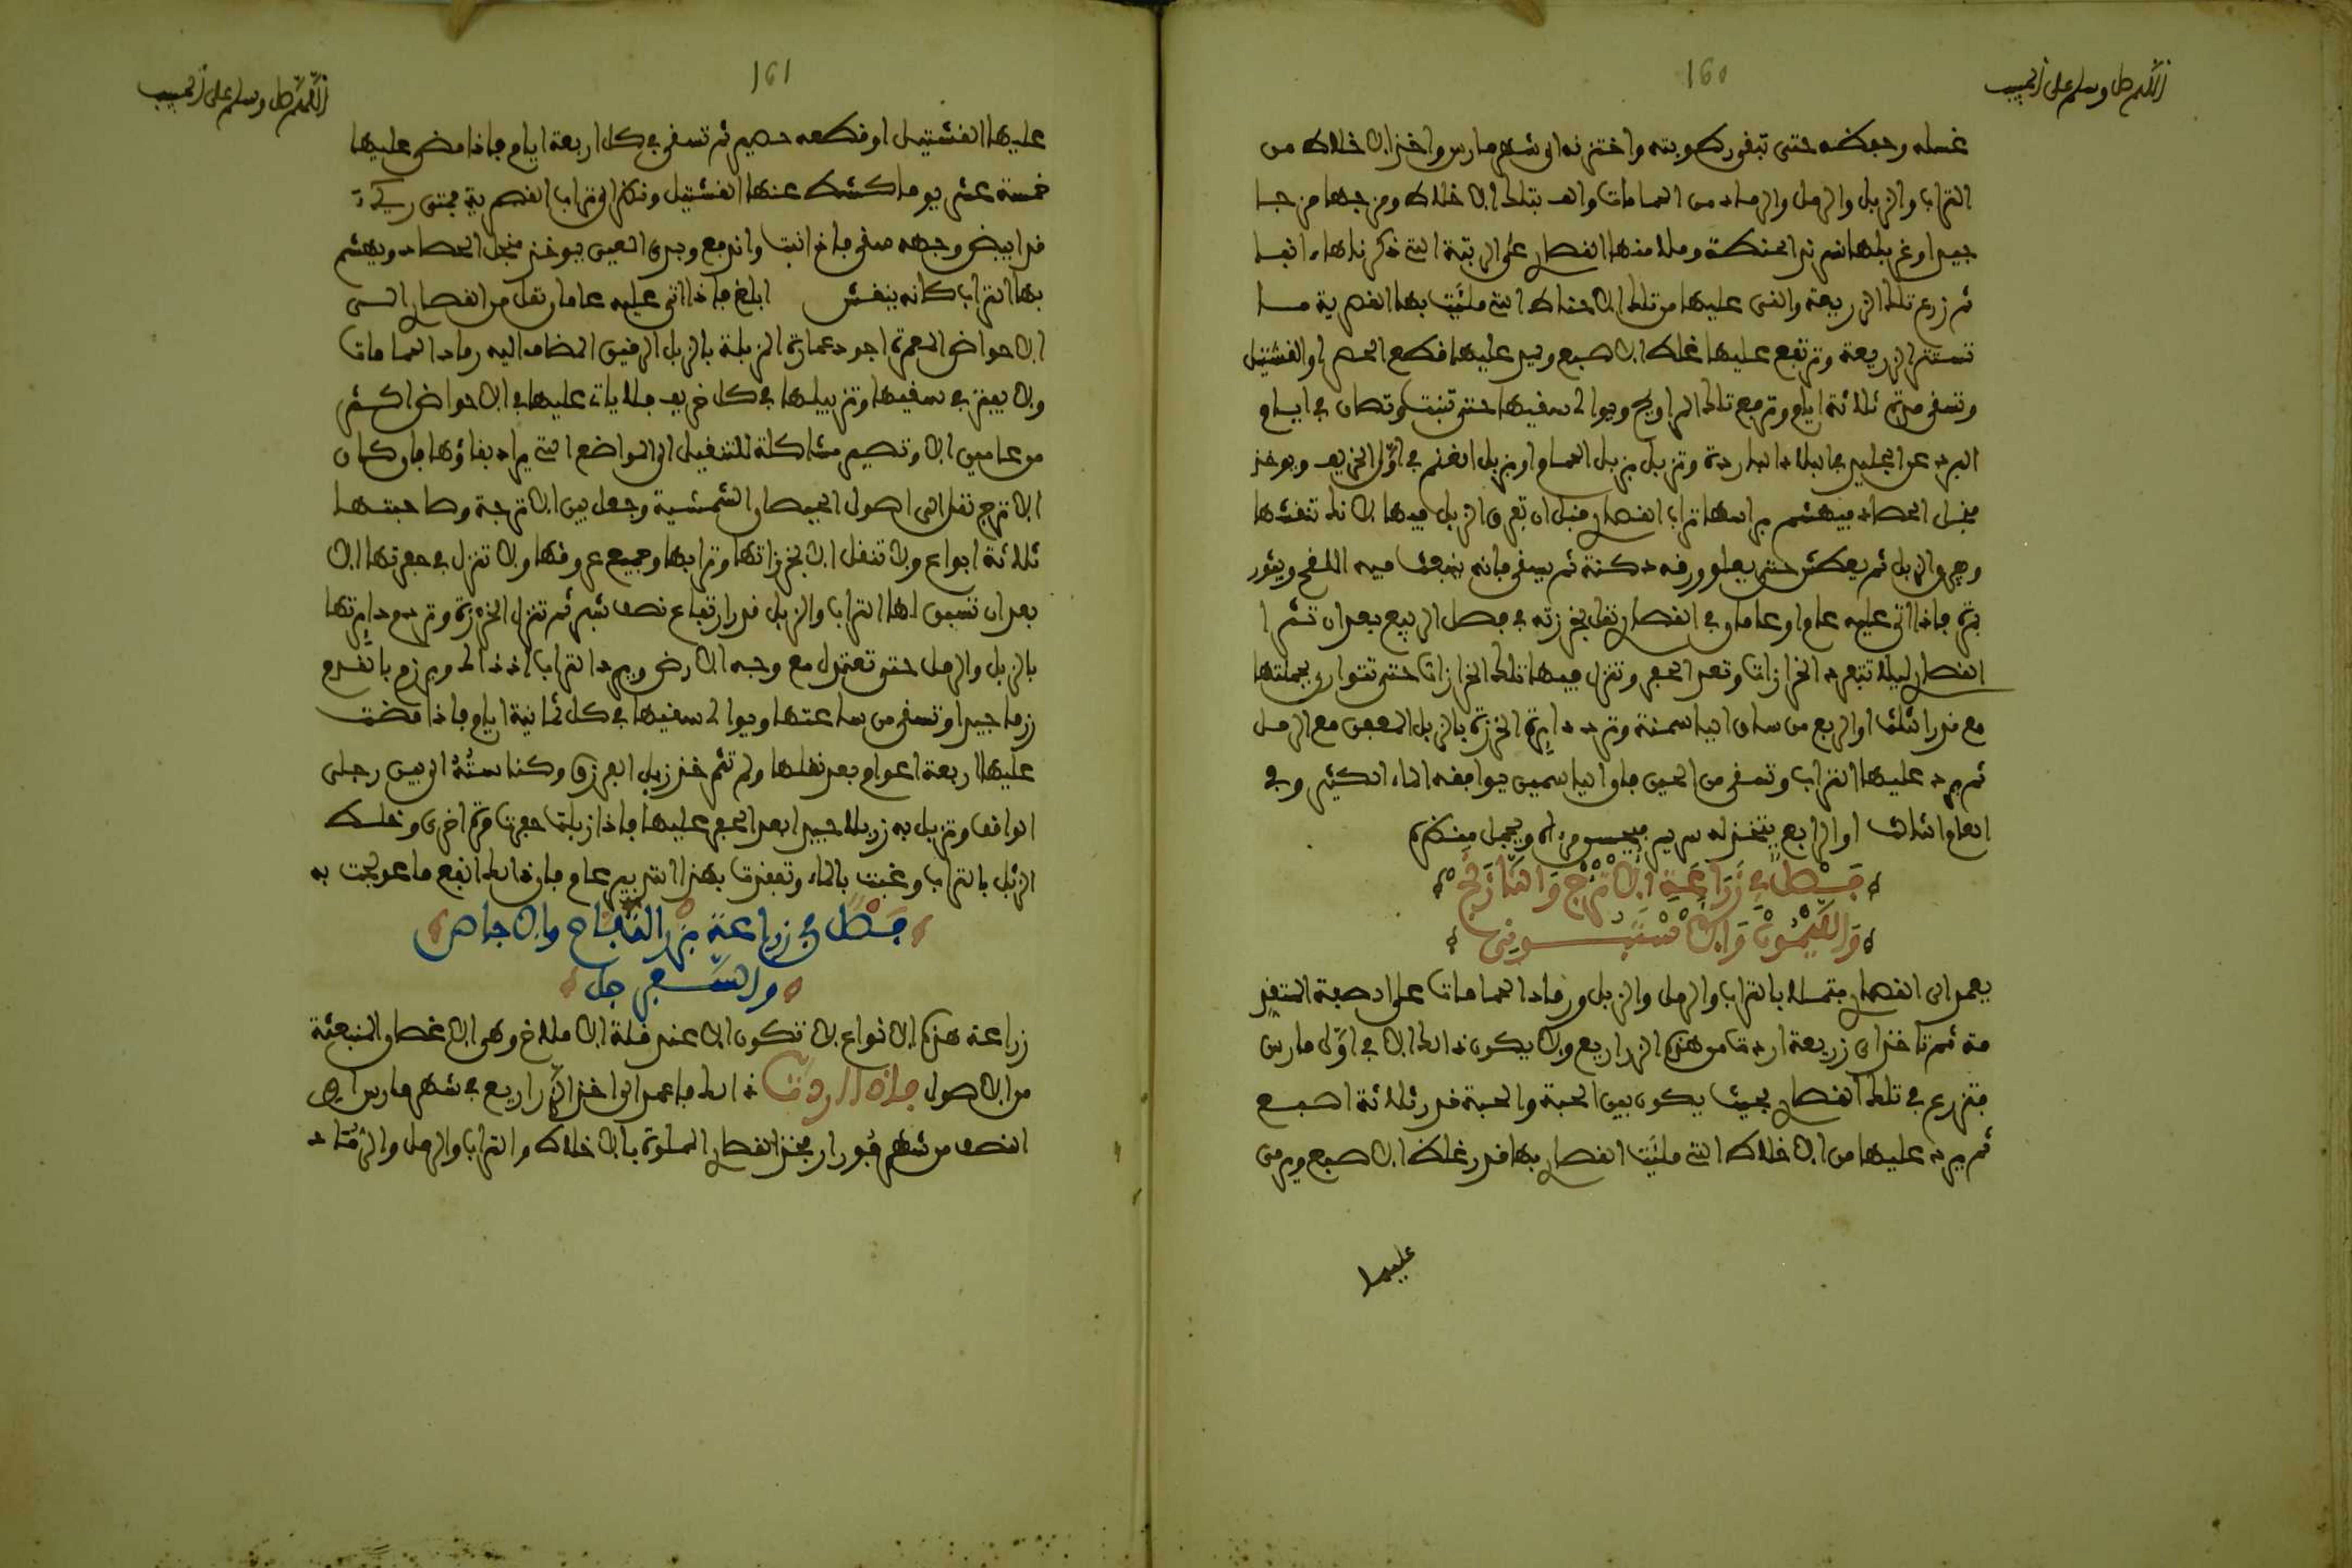 160
اللهم صل وسلم على الحبيب
غسله وجففه حتى تبقى رطوبته واختزنه الى شهر مارس واخذ الاخلاط من
التراب والزبل والرمل والرماد من الحمامات والف بتلك الاخلاط ومزجها مزجا
جيدا وغربلها غربال الحنطة وملا منها القصار على الرتبة التي ذكرناها آنفا
ثم زرع تلك الزريعة والقى عليها من تلك الاخلاط التي ملئت بها القصرية ما
تستتر الزريعة وترتفع عليها غلظ الاصبع ويرد عليها قطع الحصر او القشتيل
وتسقى مرة ثلاثة ايام وترفع تلك المراوح ويوالى سقيها حتى تنبت وتصان في ايام
البرد عن الجليد في البلاد الباردة وتزبل بزبل الحمام او بزبل الغنم في اول الخريف ويوخذ
منجل الحصاد فيهشم براسها تراب القصار قبل ان تعرى الزبل فيها لان ذلك تنقشها
وجه والزبل ثم يعطش حتى يعلو ورقه دكنة ثم يسقى فانه ينبعث فيه اللقح ويثور
بقوة فاذا اتى عليه عام او عامان في القصار نقل بخرزته في فصل الربيع بعد ان تثرا
القصار ليلا تتبعرد الخرازات وتعد الحفر وتنزل فيها تلك الخرازات حتى تتوارى بجملتها
مع قدر الثلث او الربع من ساق الياسمنة وترد دايرة الخرزة بالزبل المعفن مع الرمل
ثم يرد عليها التراب وتسقى من الحين فان الياسمين يوافقه الماء الكثير وفي
العام الثالث او الرابع يتخذ له سرير فيسمو له ويجمل منظره
فصل في زراعة الاترج والنارنج
والليمون والاستنبوتي
يعمد الى القصار فتملا بالتراب والرمل والزبل ورماد الحمامات على الصفة المتقد
مة ثم تاخذ اى زريعة اردت من هذه الزراريع ولا يكون ذلك الا في اول مارس
فتزرع في تلك القصار بحيث يكون بين الحبة والحبة قدر ثلاثة اصبع
ثم يرد عليها من الاخلاط التي ملئت القصار بها قدر غلظ الاصبع ويرمى
عليها
161
اللهم صل وسلم على الحبيب
عليها القشتيل او قطعة حصير ثم تسقى في كل اربعة ايام فاذا مضى عليها
خمسة عشر يوما كشف عنها القشتيل ونظر الى تراب القصرية فمتى ريئ
قد ابيض وجهه سقى فاذا نبت وارتفع وبدى العين يوخذ منجل الحصاد ويهشم
بها التراب كانه ينقش ابلغ فاذا اتى عليه عامان نقل من القصار الى
الاحواض المعمرة اجود عمارة المزبلة بالزبل الرقيق المضاف اليه رماد الحمامات
ولا يفتر في سقيها وتزبيلها في كل خريف فلا يات عليها في الاحواض اكثر
من عامين الا وتصير مشاكلة للتنقيل الى المواضع التي يراد بقاؤها فان كان
الاترج نقل الى اصول الحيطان الشمسية وجعل بين الاترجة وصاحبتها
ثلاثة ابواع ولا تنقل الا بخرزاتها وترابها وجميع عروقها ولا تنزل في حفرتها الا
بعد ان تسبق لها التراب والزبل قدر ارتفاع نصف شبر ثم تنزل الخرزة وتردم دايرتها
بالزبل والرمل حتى تعتدل مع وجه الارض ويرد التراب اذ ذاك ويرزم بالقدم
رزما جيدا وتسقى من ساعتها ويوالى سقيها في كل ثمانية ايام فاذا مضت
عليها اربعة اعوام بعد نقلها ولم تثمر خذ زبل البعر وكناسته الذي بين رجلي
الواقف وتزبل به زبلا جيدا بعد الحفر عليها فاذا زبلت حفرت مرة اخرى وخلط
الزبل بالتراب وغبت بالماء وتفقدت بهذا التدبير عام فان ذلك انفع ما عولجت به
فصل في زراعة بزر التفاح والاجاص
والسفرجل
زراعة هذه الانواع لا تكون الا عند قلة الاملاخ وهي الاغصان المنبعثة
من الاصول فاذا اردت ذلك فاعمد الى اخذ الزراريع في شهر مارس الى
النصف من شهر فبورار فخذ القصار المملوة بالاخلاط والتراب والرمل والرماد